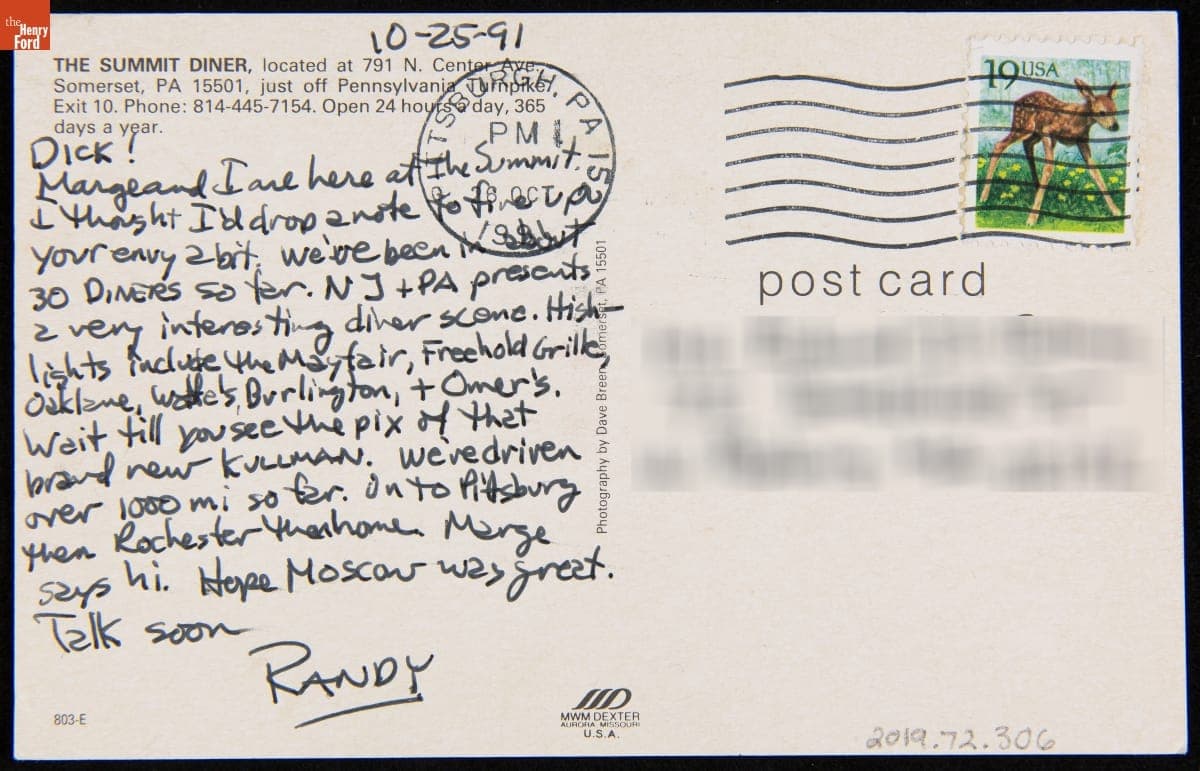 the
Henry
Ford
10-25-91
THE SUMMIT DINER, located at 791 N. Center Ave.,
Somerset, PA 15501, just off Pennsylvania Turnpike
Exit 10. Phone: 814-445-7154. Open 24 hours a day, 365
days a year.
DICK!
Marge and I are here at the Summit.
I thought I'd drop a note to fire up
your envy a bit. We've been in about
30 DINERS so far. NJ + PA presents
a very interesting diner scene. High-
lights include the Mayfair, Freehold Grille,
Oaklane, Burlington, + Omer's.
Wait till you see the pix of that
brand new KULLMAN. We've driven
over 1000 mi so far. On to Pittsburg
then Rochester then home. Marge
says hi. Hope Moscow was great.
Talk soon
RANDY
803-E
PITTSBURGH, PA 152
PM
26 OCT
1991
Photography by Dave Breen, Somerset, PA 15501
MWM DEXTER
AURORA, MISSOURI
U.S.A.
19 USA
post card
2019.72.306